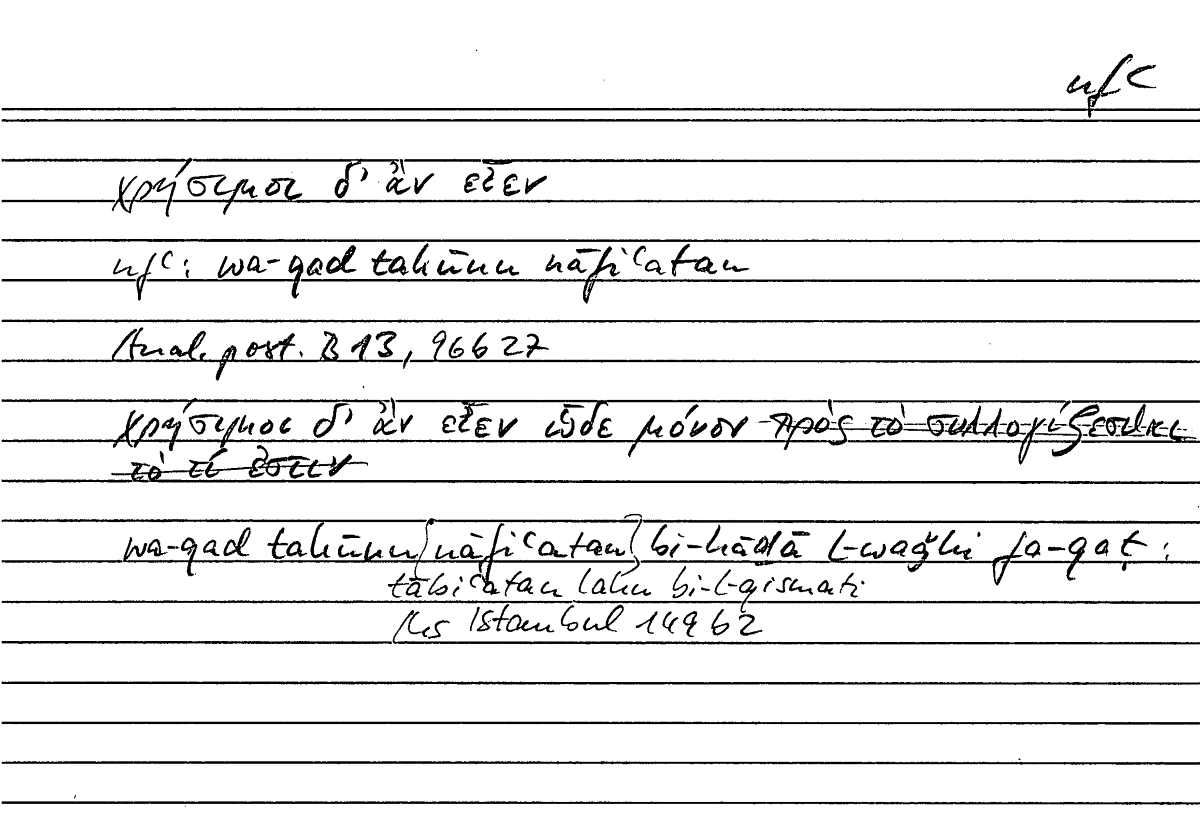 nfʿ
χρήσιμοι δ' ἂν εἶεν
nfʿ: wa-qad takūnu nāfiʿatan
Anal. post. B 13, 96b27
χρήσιμοι δ' ἂν εἶεν ὧδε μόνον πρὸς τὸ συλλογίζεσθαι
τὸ τί ἐστιν
wa-qad takūnu (nāfiʿatan) bi-hāḏā l-waǧhi fa-qaṭ :
tābiʿatan lahu bi-l-qismati
Ms Istanbul 149b2